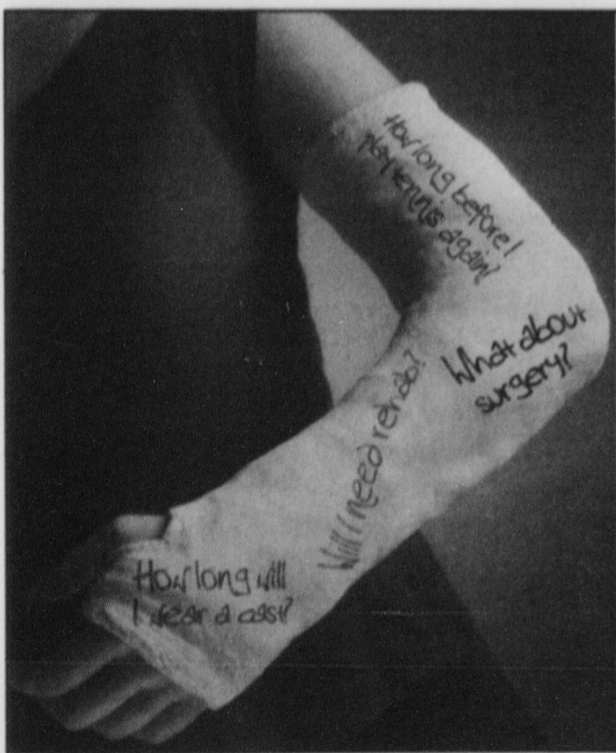 How long before I
play tennis again?
What about
surgery?
Will I need rehab?
How long will
I wear a cast?